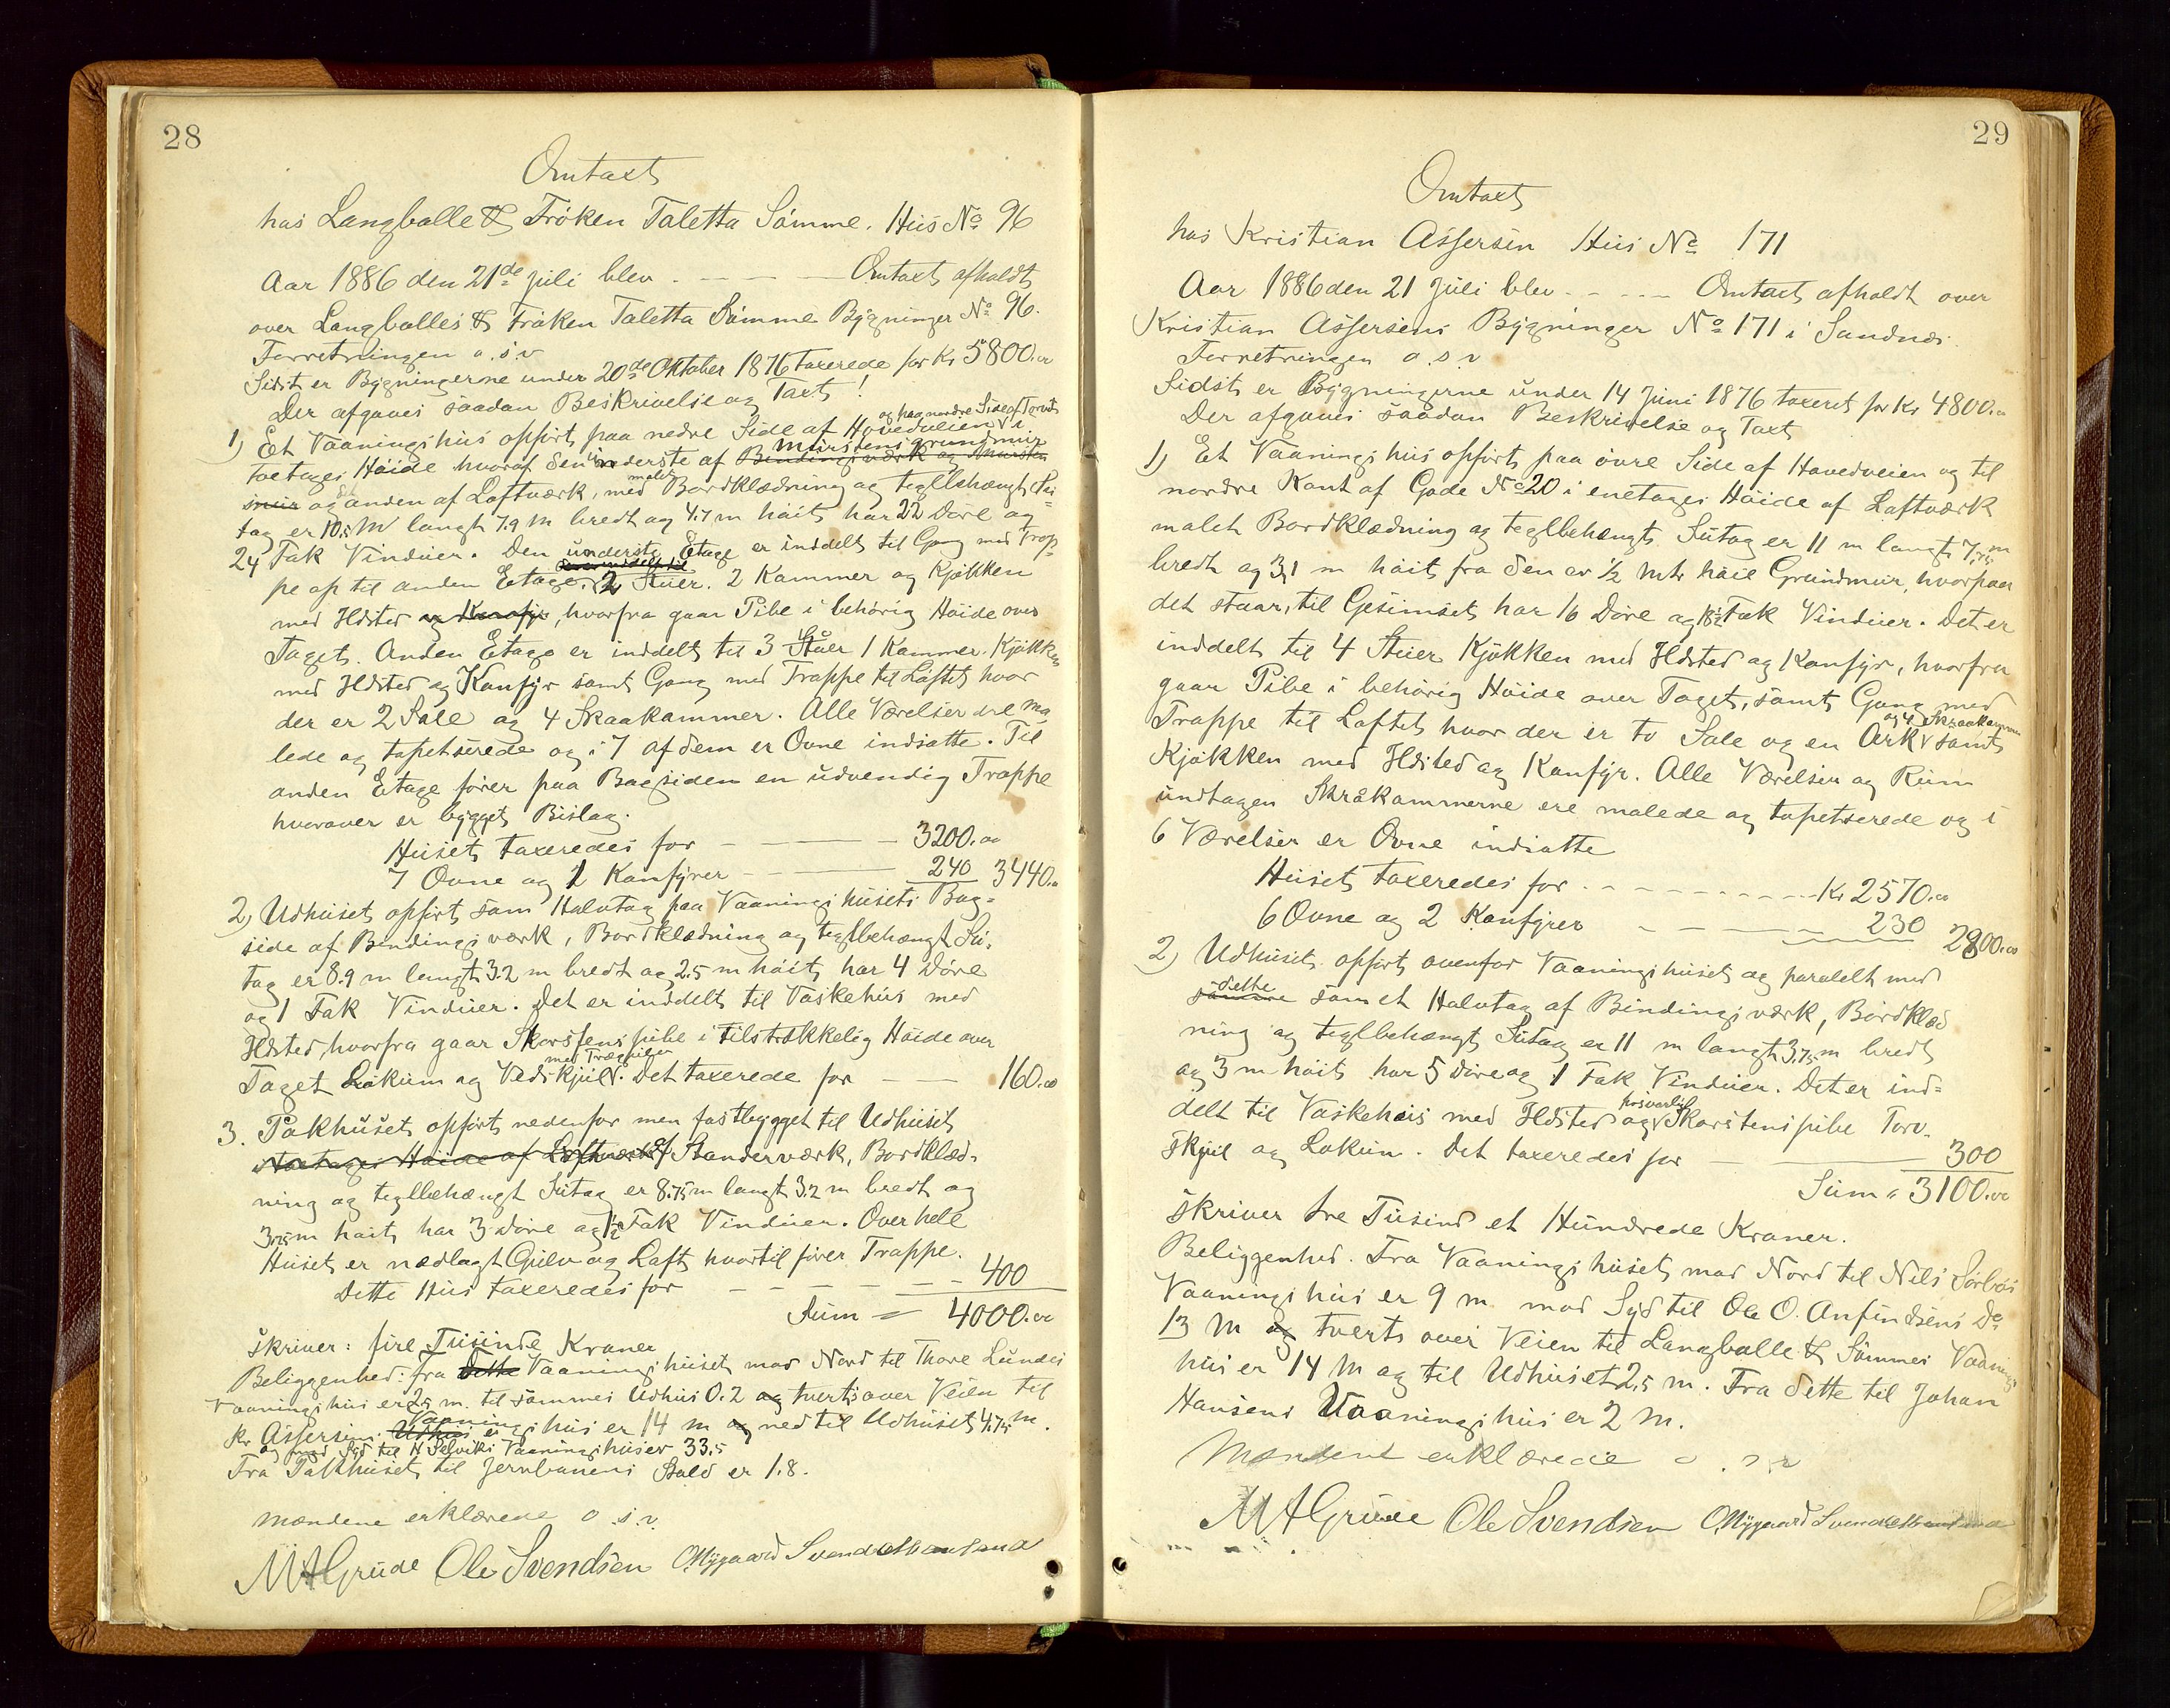 28
Omtaxt
hos Langballe & Fröken Taletta Sömme. Hus No 96
Aar 1886 den 21de Juli blev . — — — Omtaxt afholdt
over Langballes & Fröken Taletta Sömme Bygninger No 96.
Forretningen o. s. v
Sidst er Bygningerne under 20de Oktober 1876 taxerede for Kr 5800.00
Der afgaves saadan Beskrivelse og Taxt!
og paa nordre Side af Torvet
1) Et Vaaningshus opfört paa nedre Side af Hovedveien i
mursteins grundmur
toetages Höide hvoraf den underste af Bindingsværk og Mursten
malet
smur og den anden af Loftværk, med Bordklædning og teglbehængt Su-
tag er 10.5 M langt 7.9 m bredt og 4.7 m höit, har 22 Döre og
24 Fak Vinduer. Den underste Etage er inddelt til Gang med Trap-
pe op til anden Etage, 2 Stuer. 2 Kammer og Kjökken
med Ildsted og Komfyr, hvorfra gaar Pibe i behörig Höide over
Taget. Anden Etage er inddelt til 3 Stuer 1 Kammer. Kjökken
med Ildsted og Konfyr samt Gang med Trappe til Loftet hvor
der er 2 Sale og 4 Skaakammer. Alle Værelser ere ma
lede og tapetserede og i 7 af dem er Ovne indsatte. Til
anden Etage förer paa Bagsiden en udvendig Trappe
hvorover er bygget Bislag.
Huset taxeredes for — — — 3200.00
7 Ovne og 1 Konfyrer — — 240 3440.00
2) Udhuset opfört som Halvtag paa Vaaningshusets Bag-
side af Bindingsværk, Bordklædning og teglbehængt Su-
tag er 8.9 m langt 3.2 m bredt og 2.5 m höit, har 4 Döre
og 1 Fak Vinduer. Det er inddelt til Vaskehus med
Ildsted, hvorfra gaar Skorstenspibe i tilstrækkelig Höide over
Taget Lokum og Vedskjul. Det taxerede for — — 160.00
3. Pakhuset opfört nedenfor men fastbygget til Udhuset
i toetages Höide af Loftværk af Standerværk, Bordklæd-
ning og teglbehængt Sutag er 8.75 m langt 3.2 m bredt og
3.75 m höit, har 3 Döre og 1½ Fak Vinduer. Over hele
Huset er nedlagt Gulv og Loft hvortil förer Trappe.
Dette Hus taxeredes for — — — — 400
Sum = 4000.00
skriver: fire Tusinde Kroner
Beliggenhed: fra Dette Vaaningshuset mod Nord til Thore Lundes
Vaaningshus er 25 m. til sammes Udhus 0.2 og tverts over Veien til
Vaaning
Kr Assersens Udhus shus er 14 m og ned til Udhuset 4.75 m.
og mod Syd til N Selviks Vaaningshus er 33.5
Fra Pakhuset til Jernbanens Stald er 1.8.
Mændene erklærede o. s. v.
M A Grude Ole Svendsen O Nygaard Svendsen
29
Omtaxt
hos Kristian Assersen Hus No 171
Aar 1886 den 21 Juli blev - - — Omtaxt afholdt over
Kristian Assersens Bygninger No 171 i Sandnes.
Forretningen o. s. v
Sidst er Bygningerne under 14 Juni 1876 taxeret for Kr 4800.00
Der afgaves saadan Beskrivelse og Taxt
1) Et Vaaningshus opfört paa övre Side af Hovedveien og til
nordre Kant af Gade No 20 i enetages Höide af Loftværk
malet Bordklædning og teglbehængt Sutag er 11 m langt 7,75 m
bredt og 3,1 m höit fra den er ½ Mtr höie Grundmur, hvorpaa
det staar, til Gesimset, har 16 Döre og 18½ Fak Vinduer. Det er
inddelt til 4 Stuer Kjökken med Ildsted og Konfyr, hvorfra
gaar Pibe i behörig Höide over Taget, samt Gang med
og 4 Skraakammer
Trappe til Loftet hvor der er to Sale og en Ark samt
Kjökken med Ildsted og Konfyr. Alle Værelser og Rum
undtagen Skråkammerne ere malede og tapetserede og i
6 Værelser er Ovne indsatte
Huset taxeredes for - - - - - - Kr 2570.00
6 Ovne og 2 Konfyrer — — — 230 2800.00
2) Udhuset opfört ovenfor Vaaningshuset og paralelt med
dette
samme som et Halvtag af Bindingsværk, Bordklæd
ning og teglbehængt Sutag er 11 m langt 3.75 m bredt
og 3 m höit har 5 Döre og 1 Fak Vinduer. Det er ind-
delt til Vaskehus med Ildsted og Skorstenspibe Torv-
skjul og Lokum. Det taxeredes for — — 300
Sum " 3100.00
skriver tre Tusind et Hundrede Kroner.
Beliggenhed. Fra Vaaningshuset mod Nord til Nils Sörbös
Vaaningshus er 9 m. mod Syd til Ole O. Anfindsens Do
13 M og tverts over Veien til Langballe & Sömmes Vaanings
hus er 14 M og til Udhuset 2,5 m. Fra dette til Johan
Hansens Vaaningshus er 2 M.
Mændene erklærede o. s. v
M A Grude Ole Svendsen O Nygaard Svendsen